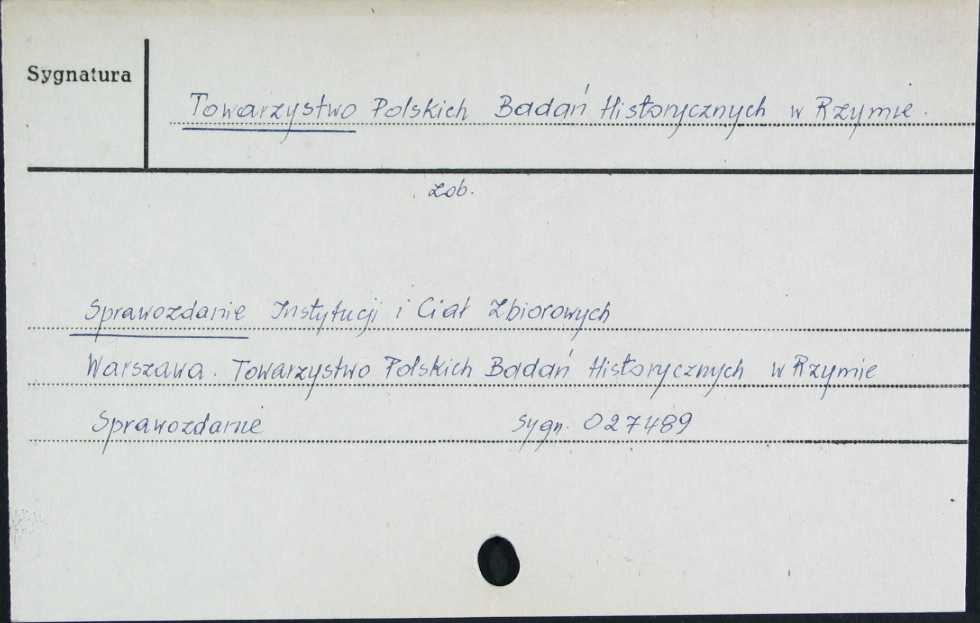 Sygnatura
Towarzystwo Polskich Badań Historycznych w Rzymie.
zob.
Sprawozdanie Instytucji i Ciał Zbiorowych
Warszawa. Towarzystwo Polskich Badań Historycznych w Rzymie
Sprawozdanie Sygn. 027489